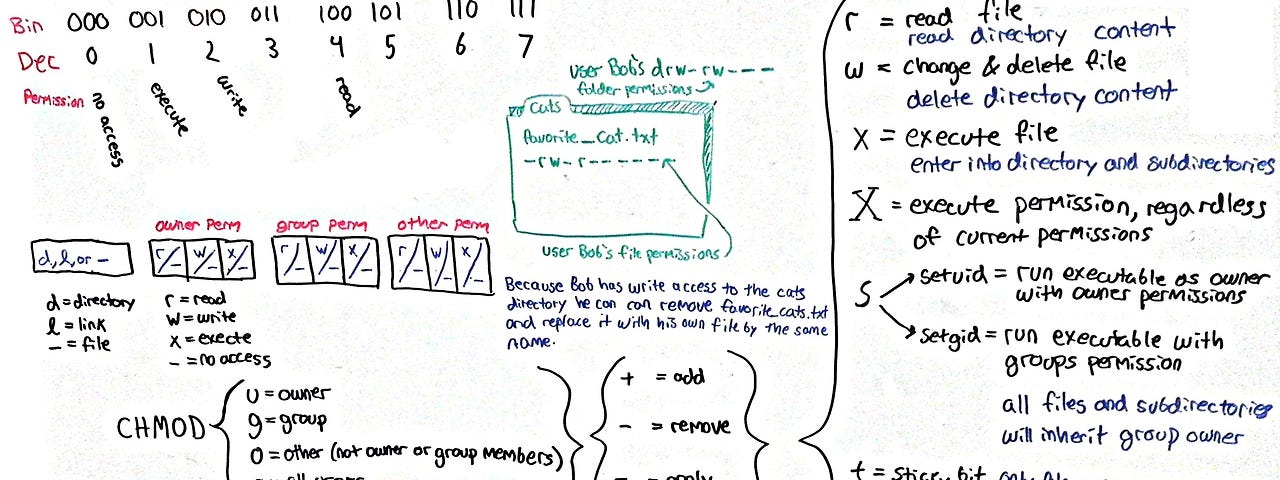 Bin 000 001 010 011 100 101 110 111
Dec 0 1 2 3 4 5 6 7
Permission no access execute write read
User Bob's drw-rw----
folder permissions
Cats
favorite_cat.txt
-rw-r------
User Bob's file permissions
Because Bob has write access to the cats
directory he can can remove favorite_cats.txt
and replace it with his own file by the same
name.
owner perm group perm other perm
d, l, or - r/- w/- x/- r/- w/- x/- r/- w/- x/-
d = directory
l = link
- = file
r = read
w = write
x = execte
- = no access
CHMOD
U = owner
g = group
O = other (not owner or group members)
+ = add
- = remove
= apply
r = read file
read directory content
w = change & delete file
delete directory content
X = execute file
enter into directory and subdirectories
X = execute permission, regardless
of current permissions
S
setuid = run executable as owner
with owner permissions
setgid = run executable with
groups permission
all files and subdirectories
will inherit group owner
t = sticky bit